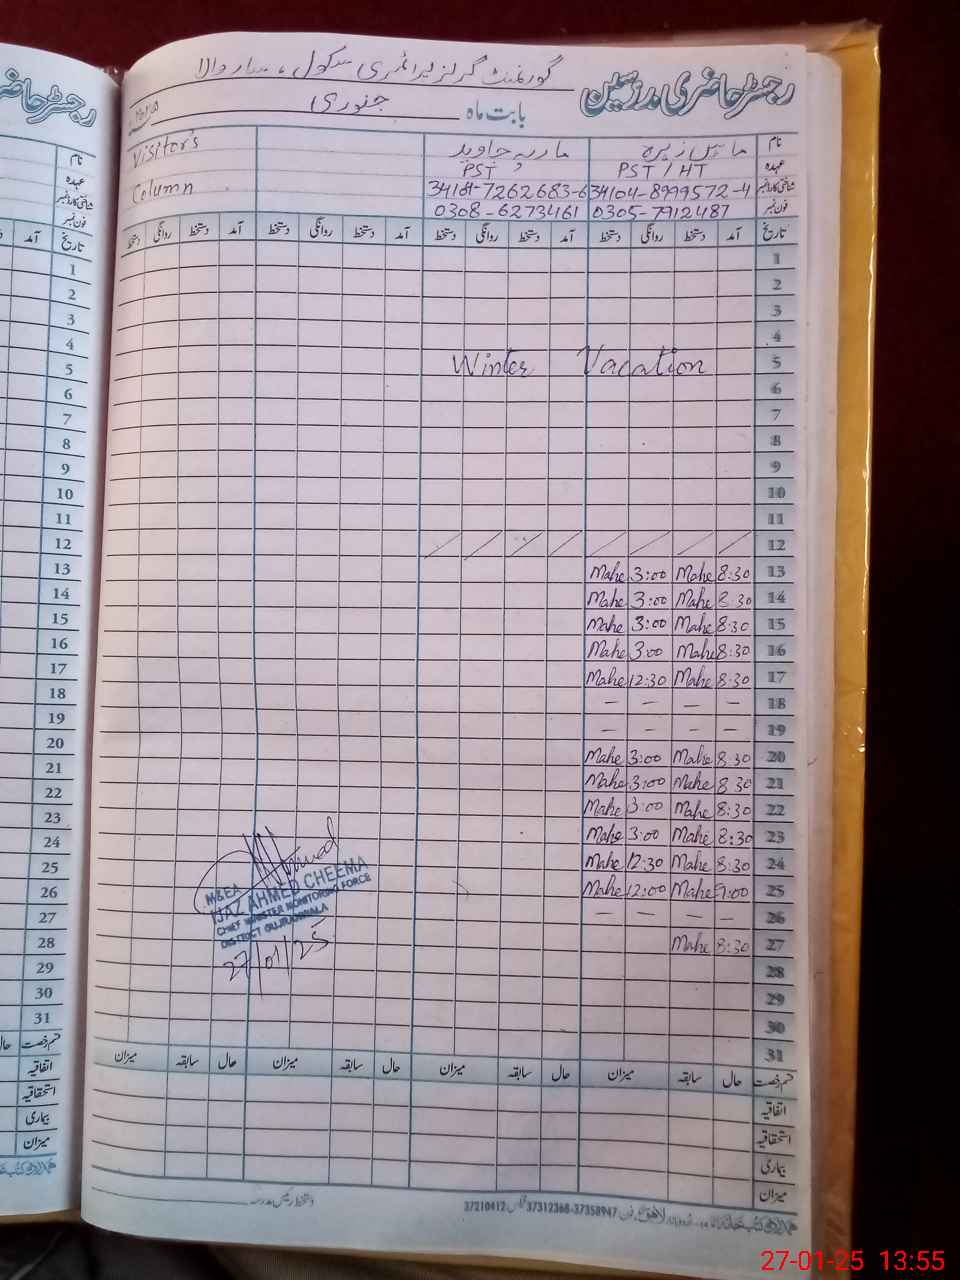 گورنمنٹ گرلز پرائمری سکول ،
رجسٹر حاضری مدرسین
بابت ماہ جنوری
نام ماریہ جاوید Visitor's
عہدہ PST / HT PST
شناختی کارڈ نمبر 34104-8999572-4 34101-7262683-6 Column
فون نمبر 0305-7912487 0308-6273461
تاریخ آمد دستخط روانگی دستخط آمد دستخط روانگی دستخط آمد دستخط روانگی دستخط آمد دستخط روانگی دستخط
1
2
3
4
5 Winter Vacation
6
7
8
9
10
11
12
13 8:30 Mahe 3:00 Mahe
14 8:30 Mahe 3:00 Mahe
15 8:30 Mahe 3:00 Mahe
16 8:30 Mahe 3:00 Mahe
17 8:30 Mahe 12:30 Mahe
18 — — — —
19 — — — —
20 8:30 Mahe 3:00 Mahe
21 8:30 Mahe 3:00 Mahe
22 8:30 Mahe 3:00 Mahe
23 8:30 Mahe 3:00 Mahe
24 8:30 Mahe 12:30 Mahe
25 9:00 Mahe 12:00 Mahe
26 — — — —
27 8:30 Mahe
28
29
30
31
M&EA
IJAZ AHMED CHEEMA
CHIEF MINISTER MONITORING FORCE
DISTRICT GUJRANWALA
27/01/25
قسم رخصت حال سابقہ میزان حال سابقہ میزان حال سابقہ میزان حال سابقہ میزان
اتفاقیہ
استحقاقیہ
بیماری
میزان
37312368-37358947 37210412
دستخط رئیس مدرسہ
رجسٹر حاضری
نام
عہدہ
شناختی کارڈ نمبر
فون نمبر
تاریخ آمد
1
2
3
4
5
6
7
8
9
10
11
12
13
14
15
16
17
18
19
20
21
22
23
24
25
26
27
28
29
30
31
قسم رخصت حال
اتفاقیہ
استحقاقیہ
بیماری
میزان
27-01-25 13:55